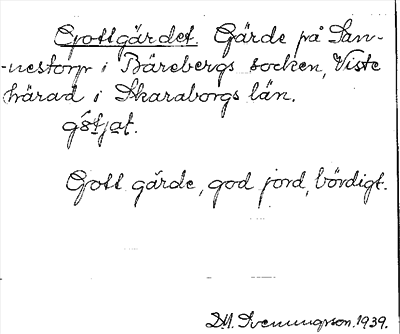 Gottgärdet. Gärde på San-
-nestorp i Bärebergs socken, Viste
härad i Skaraborgs län.
Gott gärde, god jord, bördigt.
D.A. Svenningson. 1939.